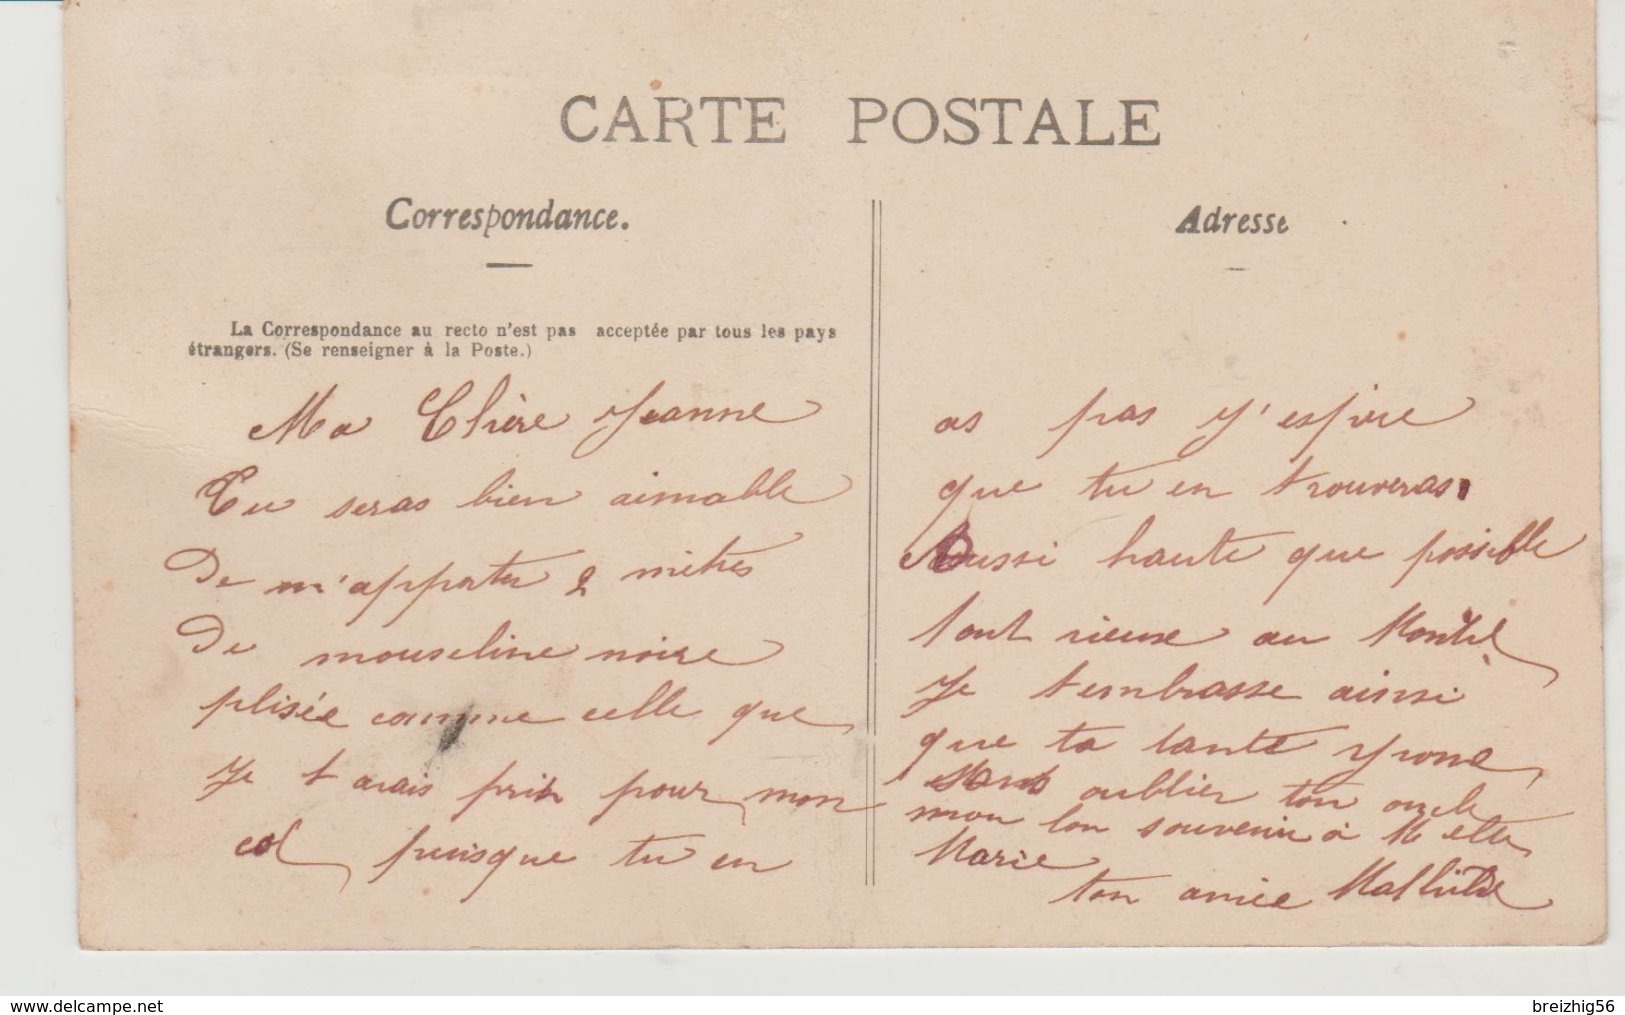 CARTE POSTALE
Correspondance.
La Correspondance au recto n'est pas acceptée par tous les pays
étrangers. (Se renseigner à la Poste.)
Ma Chère Jeanne
Tu seras bien aimable
De m'apporter 2 mètres
De mouseline noire
plisée comme celle que
Je t avais pris pour mon
col puisque tu en
Adresse
as pas j'espère
que tu en trouveras
Aussi haute que possible
tout rieuse au
Je t embrasse ainsi
que ta tante
sans oublier ton oncle
mon bon souvenir à M elle
Marie
ton amie Mathilde
delcampe.net
breizhig56